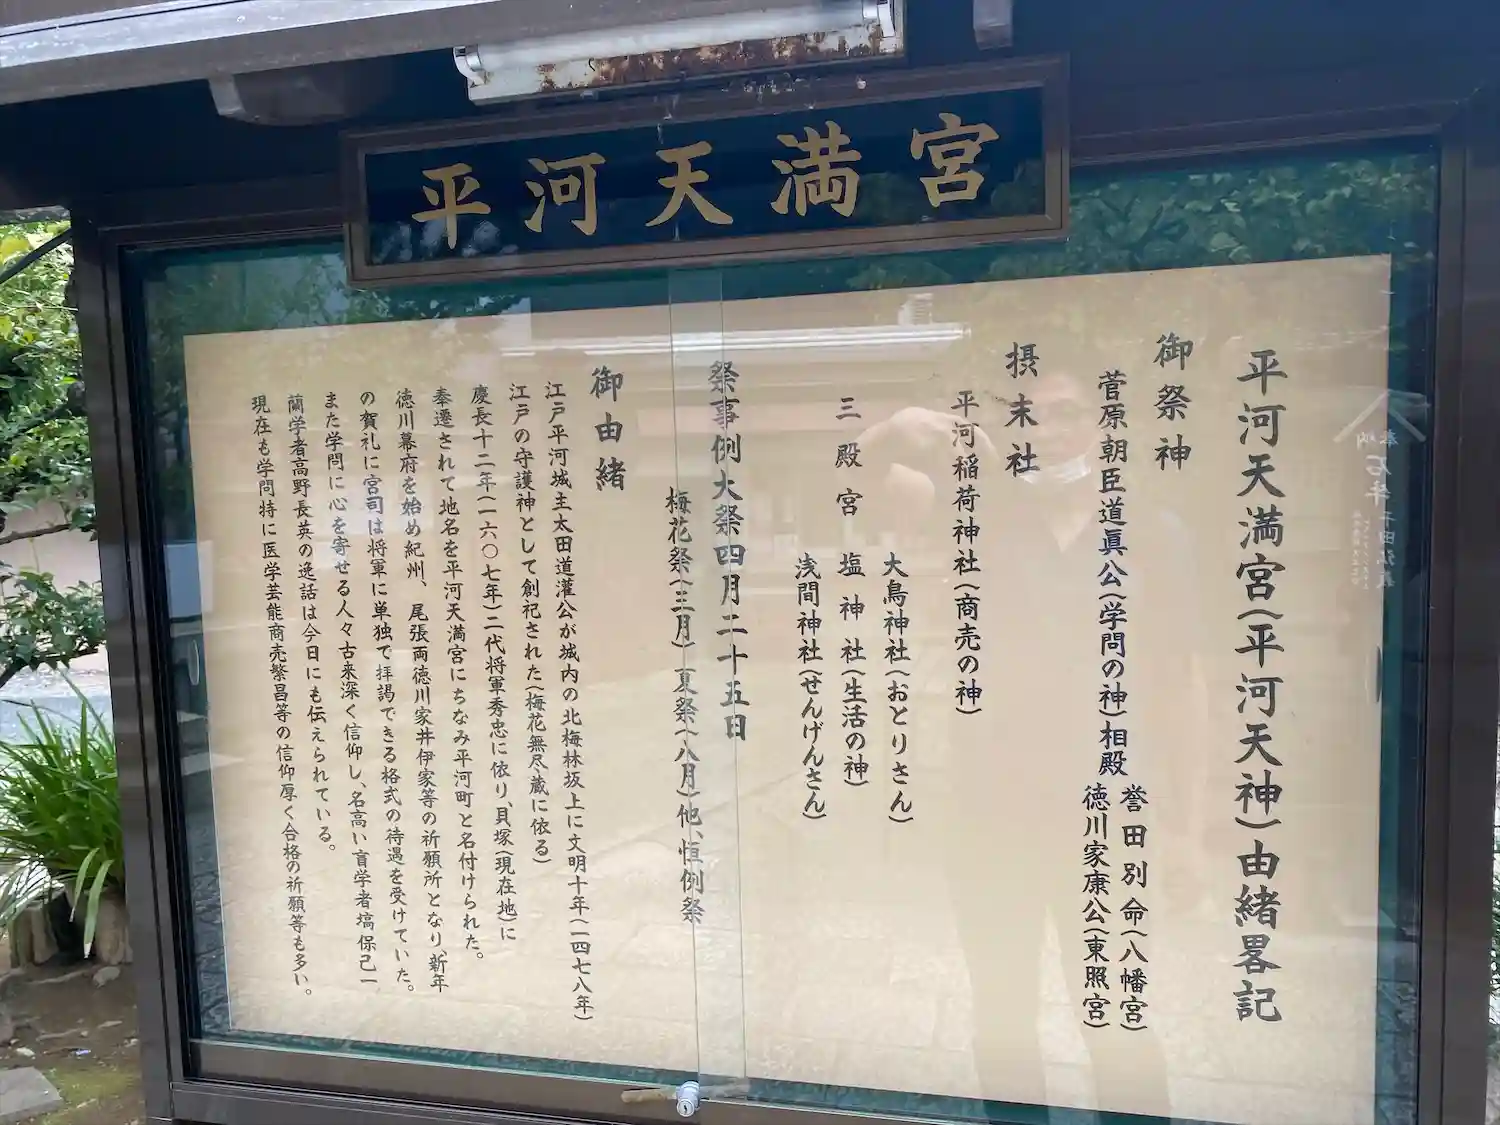 平河天満宮
平河天満宮(平河天神)由緒畧記
御祭神
菅原朝臣道眞公(学問の神)相殿
誉田別命(八幡宮)
徳川家康公(東照宮)
摂末社
平河稲荷神社(商売の神)
大鳥神社(おとりさん)
三殿宮 塩神社(生活の神)
浅間神社(せんげんさん)
祭事例大祭四月二十五日
梅花祭(三月)夏祭(八月)他、恒例祭
御由緒
江戸平河城主太田道灌公が城内の北梅林坂上に文明十年(一四七八年)
江戸の守護神として創祀された(梅花無尽蔵に依る)
慶長十二年(一六〇七年)二代将軍秀忠に依り、貝塚(現在地)に
奉遷されて地名を平河天満宮にちなみ平河町と名付けられた。
徳川幕府を始め紀州、尾張両徳川家井伊家等の祈願所となり、新年
の賀礼に宮司は将軍に単独で拝謁できる格式の待遇を受けていた。
また学問に心を寄せる人々古来深く信仰し、名高い盲学者塙保己一
蘭学者高野長英の逸話は今日にも伝えられている。
現在も学問特に医学芸能商売繁昌等の信仰厚く合格の祈願等も多い。
奉納